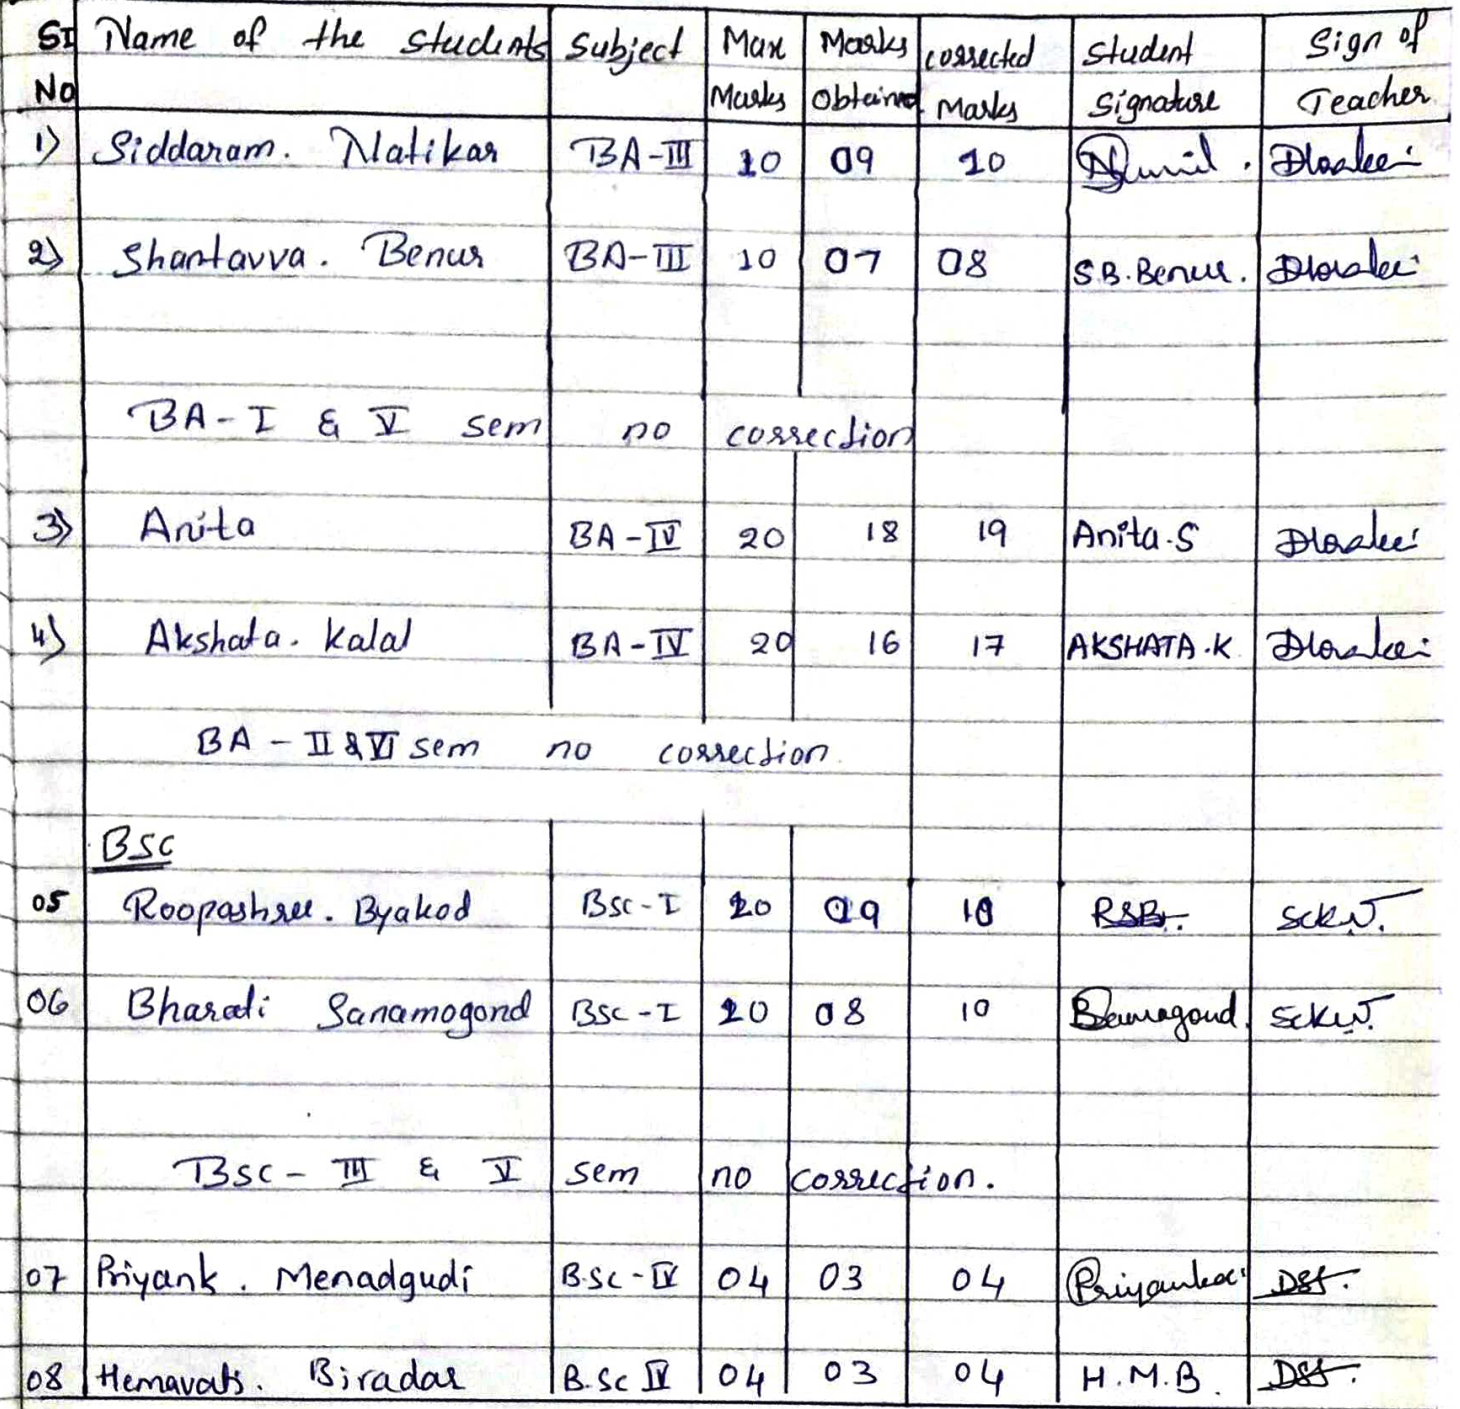 SI No Name of the students Subject Max Marks Marks Obtained corrected Marks Student Signature Sign of Teacher
1) Siddaram. Natikar BA-III 10 09 10
2) Shantavva. Benur BA-III 10 07 08 S.B.Benur.
BA-I & V sem no correction
3) Anita BA-IV 20 18 19 Anita.S
4) Akshata. Kalal BA-IV 20 16 17 AKSHATA.K
BA-II & VI sem no correction
BSC
05 Roopashree. Byakod BSC-I 09 10 RSB.
06 Bharati Sanamogond BSC-I 08 10
BSC-III & V sem no correction.
07 Priyank. Menadgudi B.SC-IV 04 03 04
08 Biradar B.SC IV 04 03 04 H.M.B.